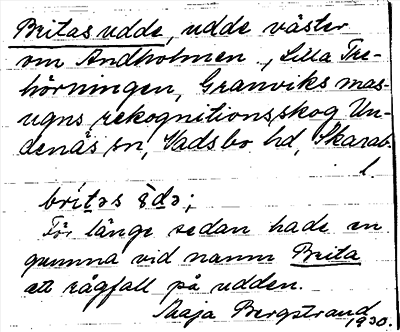 Britas udde, udde väster
om Andholmen, Lilla Tre-
hörningen, Granviks mas-
ugns rekognitionsskog Un-
denäs sn, Vadsbo hd, Skarab.
l.
britəs ùdə;
För länge sedan hade en
gumma vid namn Brita
ett rågfall på udden.
Maja Bergstrand
1930.